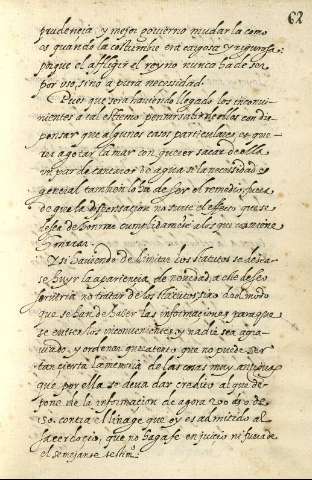 62
prudencia, y mejor govierno mudarla como
es quando la costumbre era cargosa y rigurosa:
porque el affligir el reyno nunca ha de ser
por uso, sino a pura necesidad.
Pues que sera haviendo llegado los inconvi-
nientes a tal estremo pensar satisfazellos con dis-
pensar que algunos casos particulares es que-
rer agotar la mar con querer sacar de ella
un par de cantaros de agua se la necesidad es
general tambien lo ha de ser el remedio, fuera
de que la dispensacion no surte el effecto que se
deseo de honrrar cumplidamente a los que conviene
honrrar.
Y si haviendo de limitar los statutos se desea-
se huyr la apariencia de novedad, a este deseo
serviria no tratar de los statutos, sino del modo
que se han de haber las informaciones para que
se eviten los inconvenientes, y nadie sea agra-
viado, y ordenar que atento que no puede ser
tan cierta la memoria de las cosas muy antiguas
que por ella se deva dar credito al que de-
pone de la informacion de agora 200 años o
150. contra el linage que oy es admitido al
sacerdocio, que no haga fe en juicio ni fuera de
el semejante testimº.